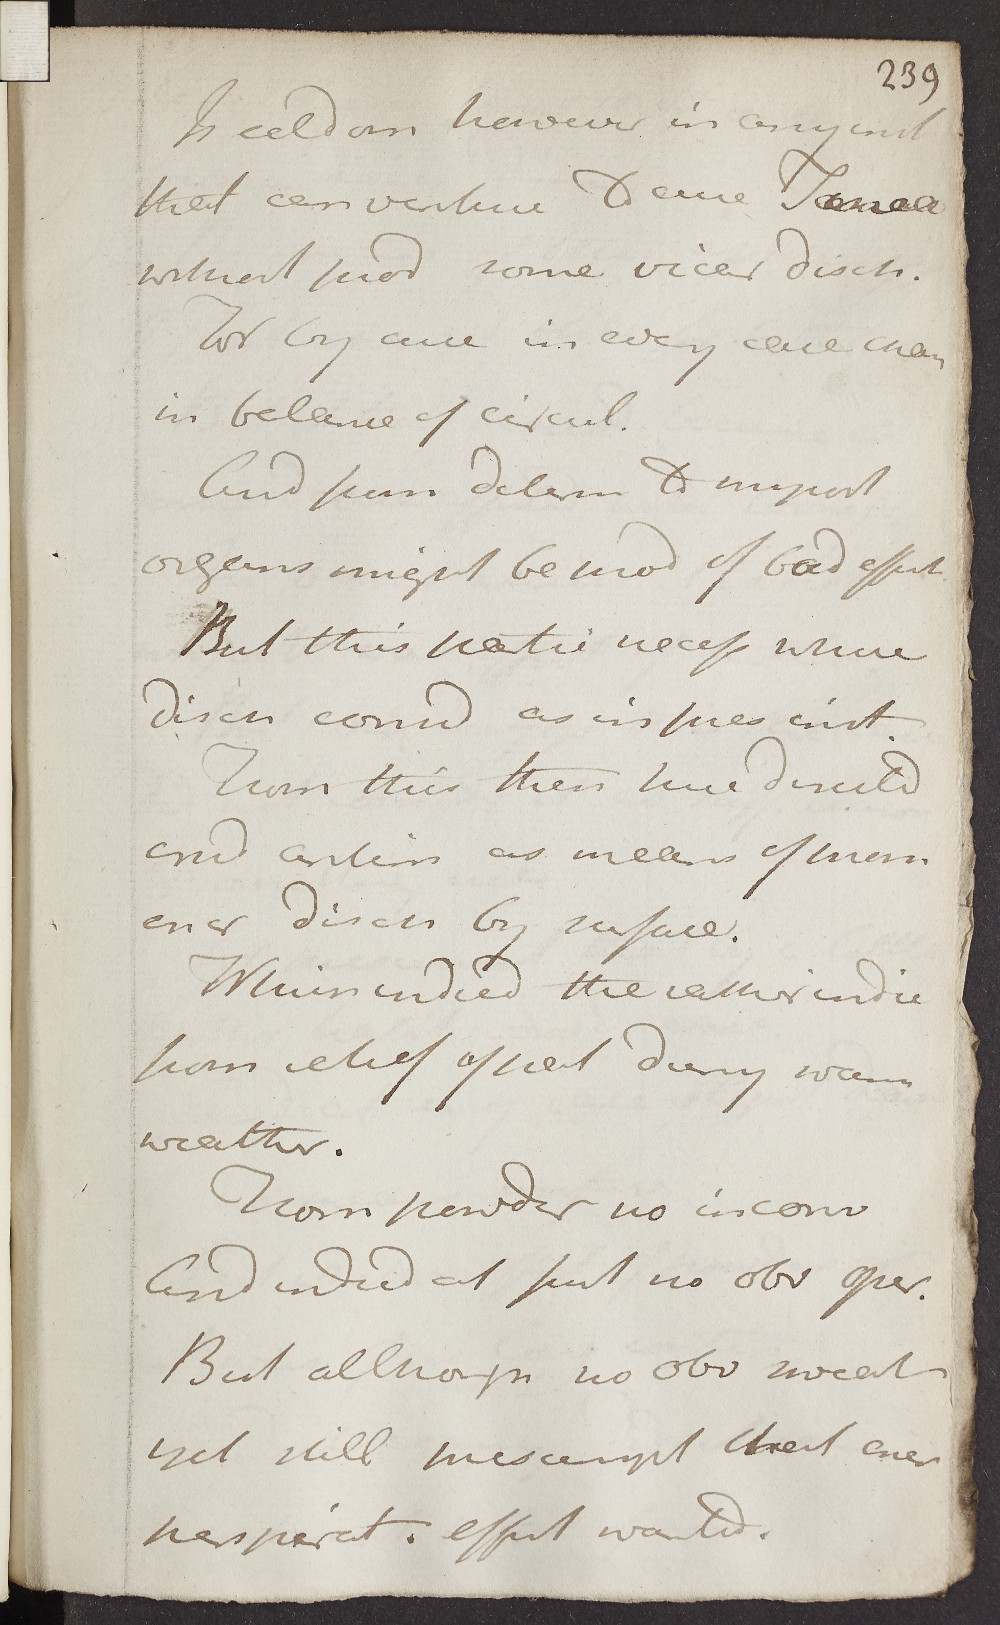 239
Is seldom however in any inst
that can venture to cure
without prod some vicar disch.
For by cure in every case chan
in balance of circul.
And from determ to import
organs might be prod of bad effect
But this partic necess where
disch consid as in pres inst.
From this then have directd
and antim as means of prom
ener disch by surface.
Which indeed the rather indic
from relief of pat during warm
weather.
From powder no inconv
And indeed at first no obv oper.
But although no obv sweat
yet still presumpt that ener
perspirat. effect wantd.